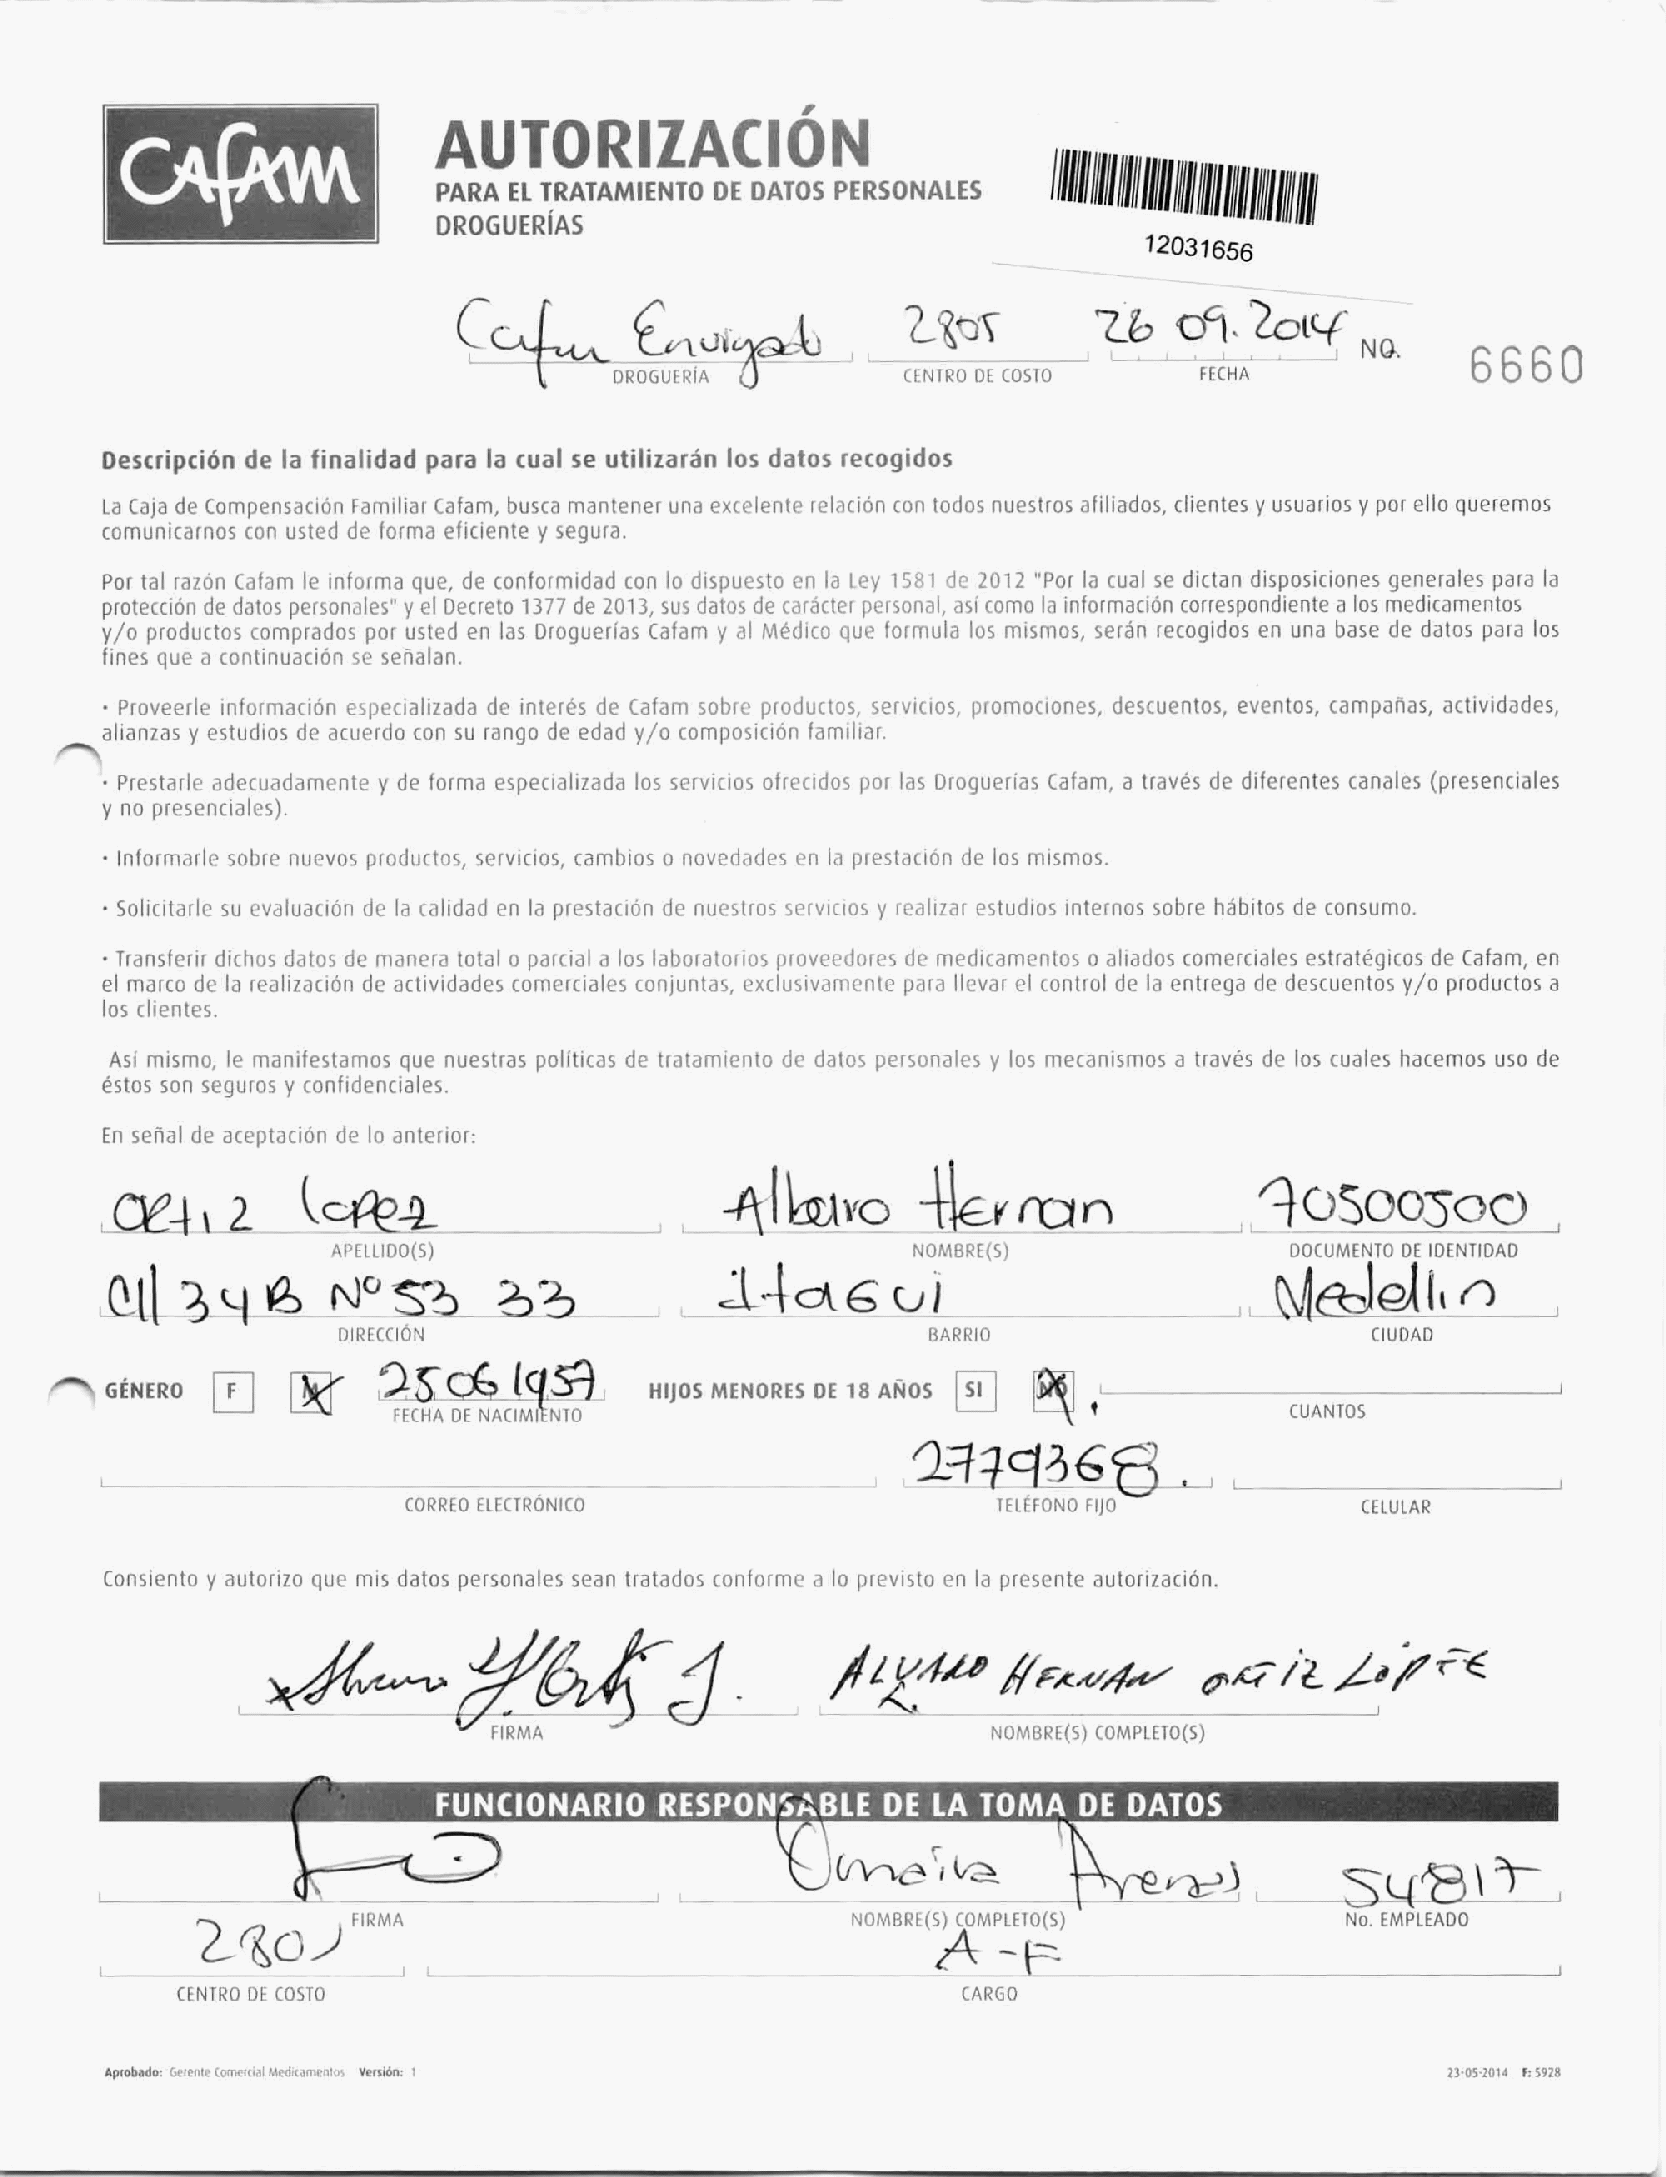 Cafam
AUTORIZACIÓN
PARA EL TRATAMIENTO DE DATOS PERSONALES
DROGUERÍAS
12031656
Cafam Envigado 2805 26 09.2014 NO. 6660
DROGUERÍA CENTRO DE COSTO FECHA
Descripción de la finalidad para la cual se utilizarán los datos recogidos
La Caja de Compensación Familiar Cafam, busca mantener una excelente relación con todos nuestros afiliados, clientes y usuarios y por ello queremos
comunicarnos con usted de forma eficiente y segura.
Por tal razón Cafam le informa que, de conformidad con lo dispuesto en la Ley 1581 de 2012 "Por la cual se dictan disposiciones generales para la
protección de datos personales" y el Decreto 1377 de 2013, sus datos de carácter personal, así como la información correspondiente a los medicamentos
y/o productos comprados por usted en las Droguerías Cafam y al Médico que formula los mismos, serán recogidos en una base de datos para los
fines que a continuación se señalan.
· Proveerle información especializada de interés de Cafam sobre productos, servicios, promociones, descuentos, eventos, campañas, actividades,
alianzas y estudios de acuerdo con su rango de edad y/o composición familiar.
· Prestarle adecuadamente y de forma especializada los servicios ofrecidos por las Droguerías Cafam, a través de diferentes canales (presenciales
y no presenciales).
· Informarle sobre nuevos productos, servicios, cambios o novedades en la prestación de los mismos.
· Solicitarle su evaluación de la calidad en la prestación de nuestros servicios y realizar estudios internos sobre hábitos de consumo.
· Transferir dichos datos de manera total o parcial a los laboratorios proveedores de medicamentos o aliados comerciales estratégicos de Cafam, en
el marco de la realización de actividades comerciales conjuntas, exclusivamente para llevar el control de la entrega de descuentos y/o productos a
los clientes.
Así mismo, le manifestamos que nuestras políticas de tratamiento de datos personales y los mecanismos a través de los cuales hacemos uso de
éstos son seguros y confidenciales.
En señal de aceptación de lo anterior:
Ortiz Lopez Albeiro Hernan 70500500
APELLIDO(S) NOMBRE(S) DOCUMENTO DE IDENTIDAD
Cll 34B Nº 53 33 Itagui Medellin
DIRECCIÓN BARRIO CIUDAD
GÉNERO F 25 06 1957 HIJOS MENORES DE 18 AÑOS SI NO
FECHA DE NACIMIENTO CUANTOS
2779368.
CORREO ELECTRÓNICO TELÉFONO FIJO CELULAR
Consiento y autorizo que mis datos personales sean tratados conforme a lo previsto en la presente autorización.
ALVARO HERNAN ORTIZ LOPEZ
FIRMA NOMBRE(S) COMPLETO(S)
FUNCIONARIO RESPONSABLE DE LA TOMA DE DATOS
Omaira Arenas 54817
FIRMA NOMBRE(S) COMPLETO(S) No. EMPLEADO
2805 A-F
CENTRO DE COSTO CARGO
Aprobado: Gerente Comercial Medicamentos Versión: 1 23-05-2014 F: 5928